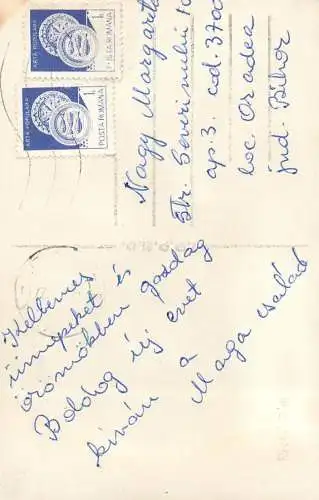 Kellemes
ünnepeket és
örömökben gazdag
Boldog új évet
kíván a
Marga család
ARTA POPULARA
1 L
POSTA ROMANA
ARTA POPULARA
1 L
POSTA ROMANA
Nagy Margareta
Str. Severinului
ap. 3. cod. 3700
loc Oradea
jud. Bihor